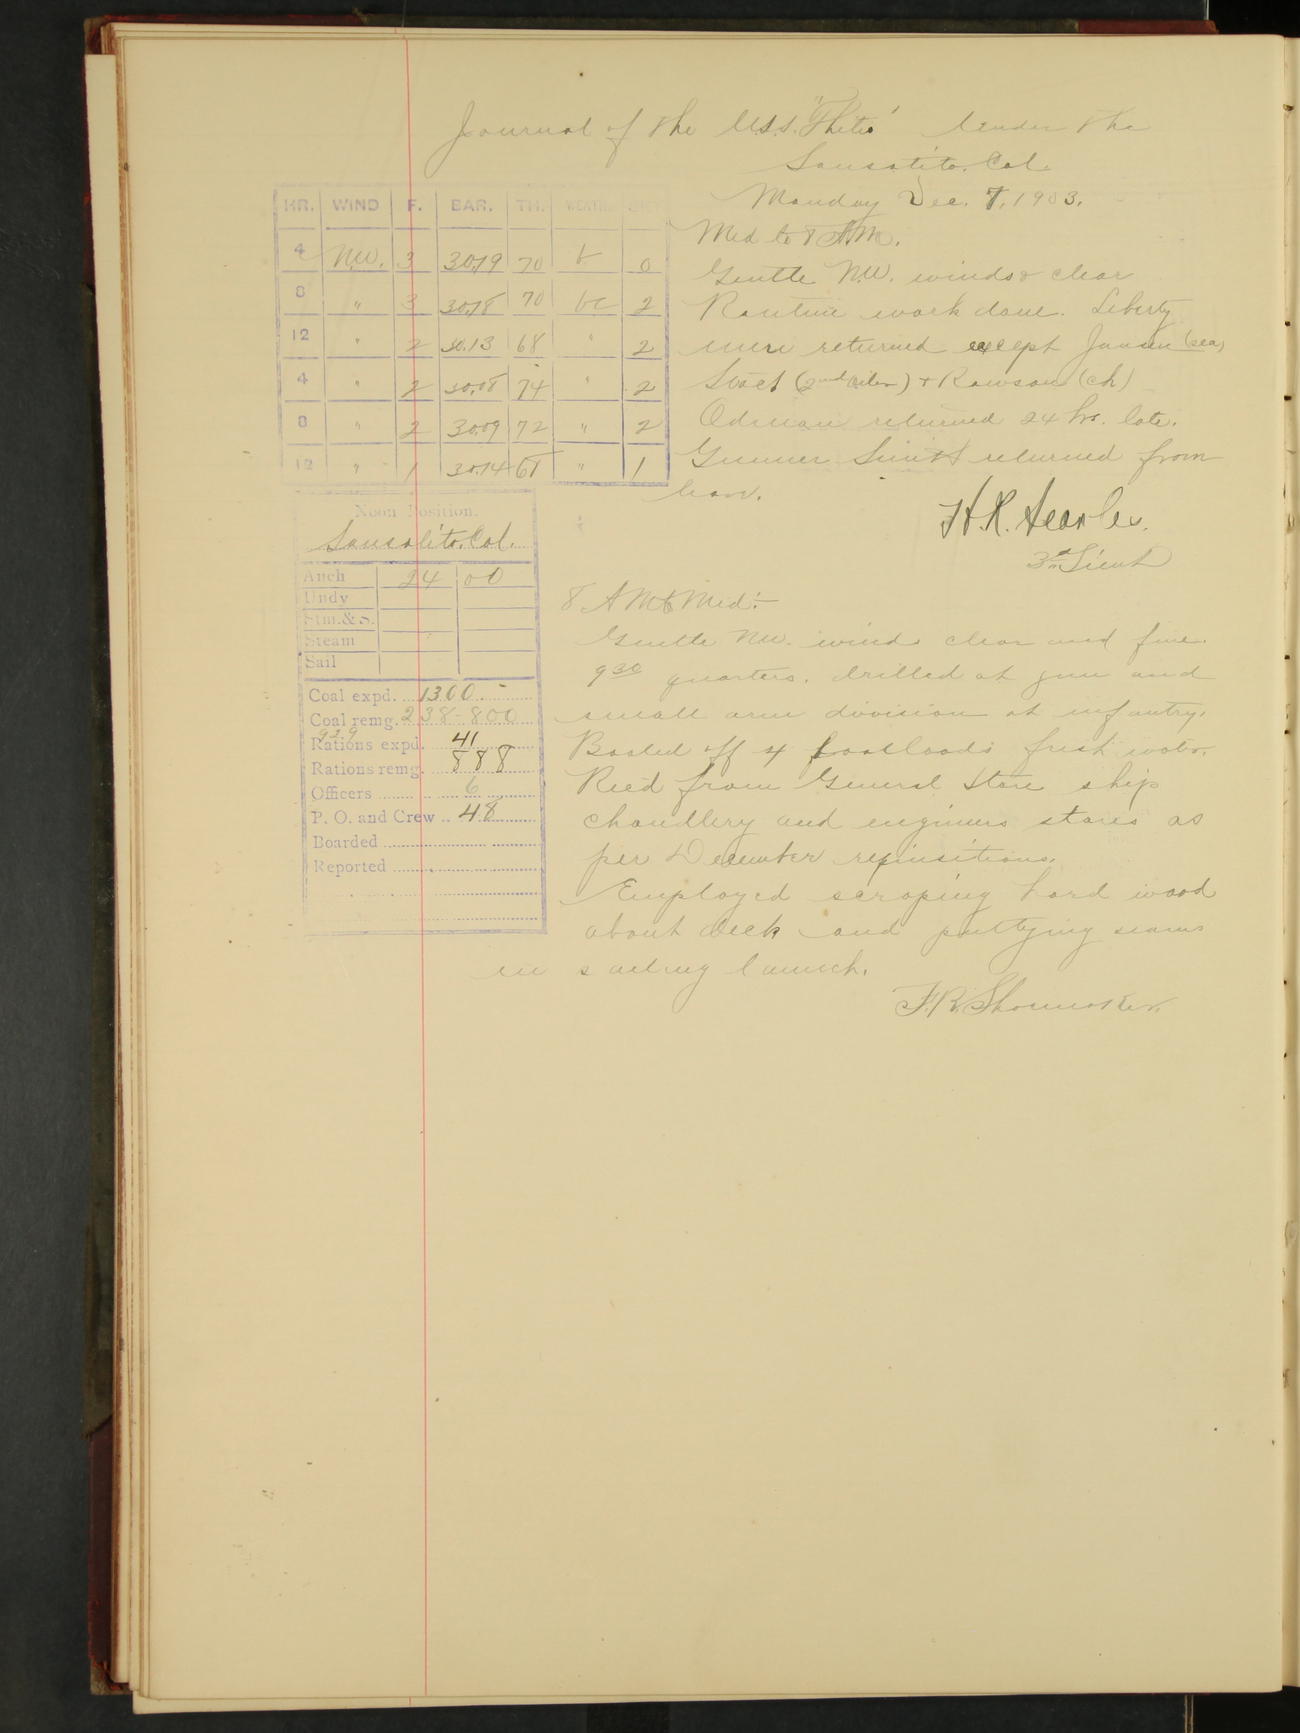 Journal of the U.S.S. "Thetis" Under the
Sausalito, Cal.
Monday Dec. 7, 1903.
HR. WIND F. BAR. TH. WEATH.
4 N.W. 3 30.19 70 b 0
8 " 3 30.18 70 bc 2
12 " 2 30.13 68 " 2
4 " 2 30.08 74 " 2
8 " 2 30.09 72 " 2
12 " 1 30.14 68 " 1
Med to 8 A.M.
Gentle N.W. winds & clear
Routine work done. Liberty
men returned except Jansen (sea)
(2nd Oiler) & Rawson (ch)
returned 24 hrs. late.
Gunner Smith returned from
leave.
H.R. Searles.
3rd Lieut
Noon Position.
Sausalito, Cal.
Anch 24 00
Undy
Stm. & S.
Steam
Sail
Coal expd. 1300
Coal remg. 238-800
929
Rations expd. 41
Rations remg. 888
Officers 6
P. O. and Crew 48
Boarded
Reported
8 AM to Mid:-
Gentle NW. winds clear and fine.
9 30 quarters. drilled at gun and
small arm division at infantry.
Boated off 4 boatloads fresh water.
Rec'd from General Store ship
chandlery and engineers stores as
per December requisitions.
Employed scraping hard wood
about deck and puttying seams
in sailing launch.
F.R. Shoemaker.